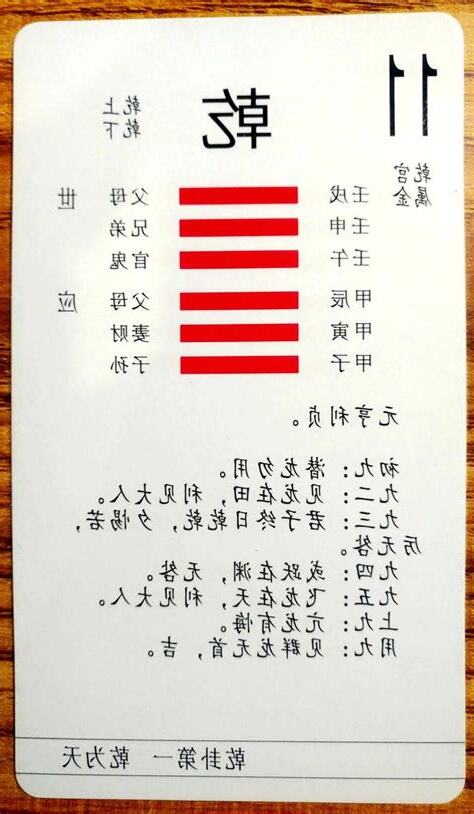 11
乾
乾上
乾下
乾宫
属金
壬戌 父母 世
壬申 兄弟
壬午 官鬼
甲辰 父母 应
甲寅 妻财
甲子 子孙
元亨利贞。
初九：潜龙勿用。
九二：见龙在田，利见大人。
九三：君子终日乾乾，夕惕若，
厉无咎。
九四：或跃在渊，无咎。
九五：飞龙在天，利见大人。
上九：亢龙有悔。
用九：见群龙无首，吉。
乾卦第一 乾为天